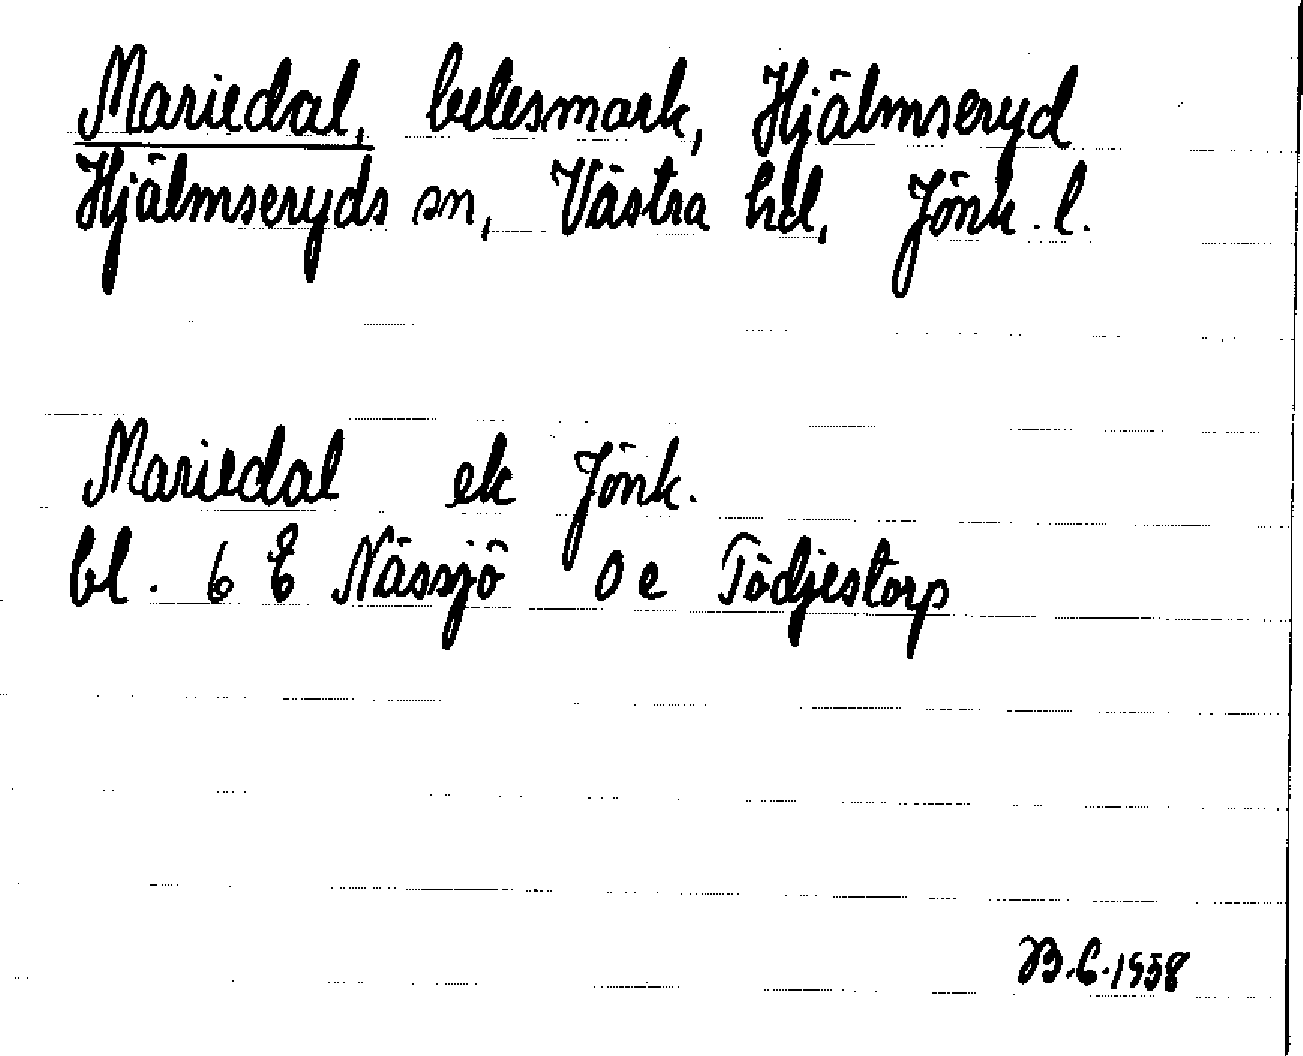 Mariedal, belesmark, Hjälmseryd
Hjälmseryds sn, Västra hd, Jönk. l.
Mariedal ek Jönk.
bl. 6 E Nässjö 0 e Tödjestorp
B.C. 1958